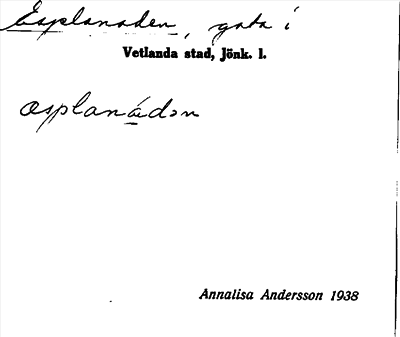 Esplanaden, gata i
Vetlanda stad, Jönk. l.
æsplanádən
Annalisa Andersson 1938